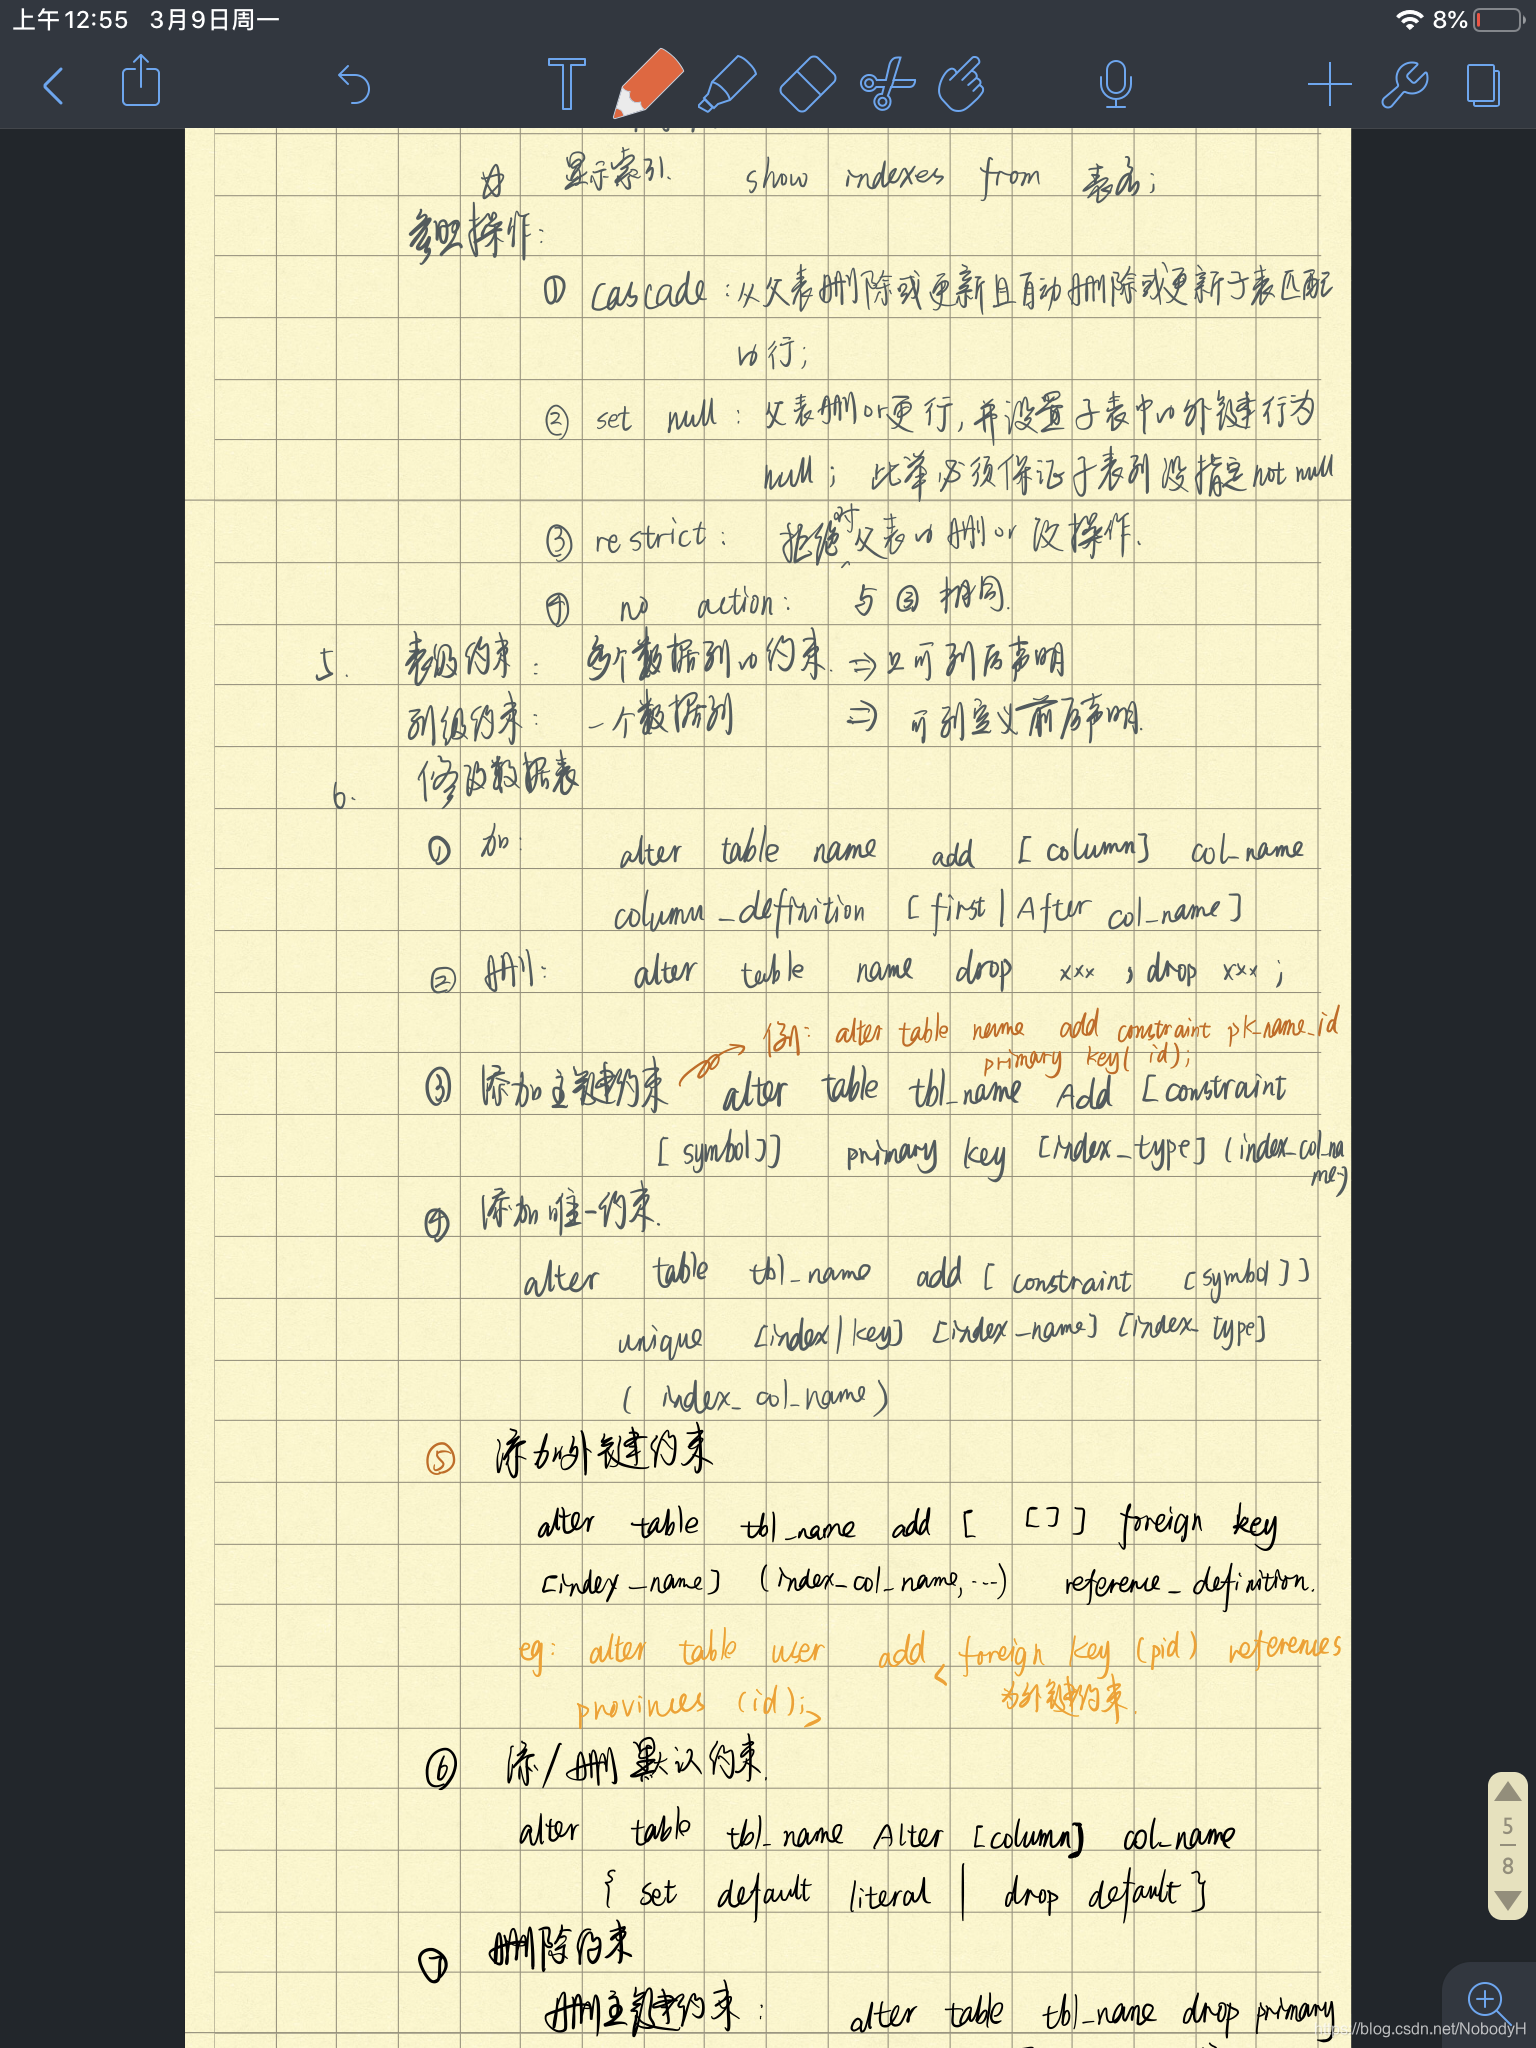 上午12:55 3月9日周一 8%
☆ 显示索引. show indexes from 表名;
参照操作:
① cascade:从父表删除或更新且自动删除或更新子表匹配
的行;
② set null: 父表删or更行,并设置子表中的外键行为
null; 此举必须保证子表列没指定not null
③ restrict: 拒绝对父表的删or改操作.
④ no action: 与③相同.
5. 表级约束: 多个数据列的约束. ⇒只可列后声明
列级约束: 一个数据列 ⇒ 可列定义前后声明.
6. 修改数据表
① 加: alter table name add [column] col_name
column_definition [first|After col_name]
② 删: alter table name drop xxx , drop xxx ;
例: alter table name add constraint pk_name_id
primary key( id);
③ 添加主键约束 alter table tbl_name Add [constraint
[symbol]] primary key [index_type] (index_col_na
me)
④ 添加唯一约束.
alter table tbl_name add [constraint [symbol]]
unique [index|key] [index_name] [index_type]
( index_col_name)
⑤ 添加外键约束
alter table tbl_name add [ []] foreign key
[index_name] (index_col_name,...) reference_definition.
eg: alter table user add < foreign key (pid) references
provinces (id);> 为外键约束.
⑥ 添/删 默认约束.
alter table tbl_name Alter [column] col_name
{ set default literal | drop default }
⑦ 删除约束
删主键约束: alter table tbl_name drop primary
5
8
https://blog.csdn.net/NobodyH